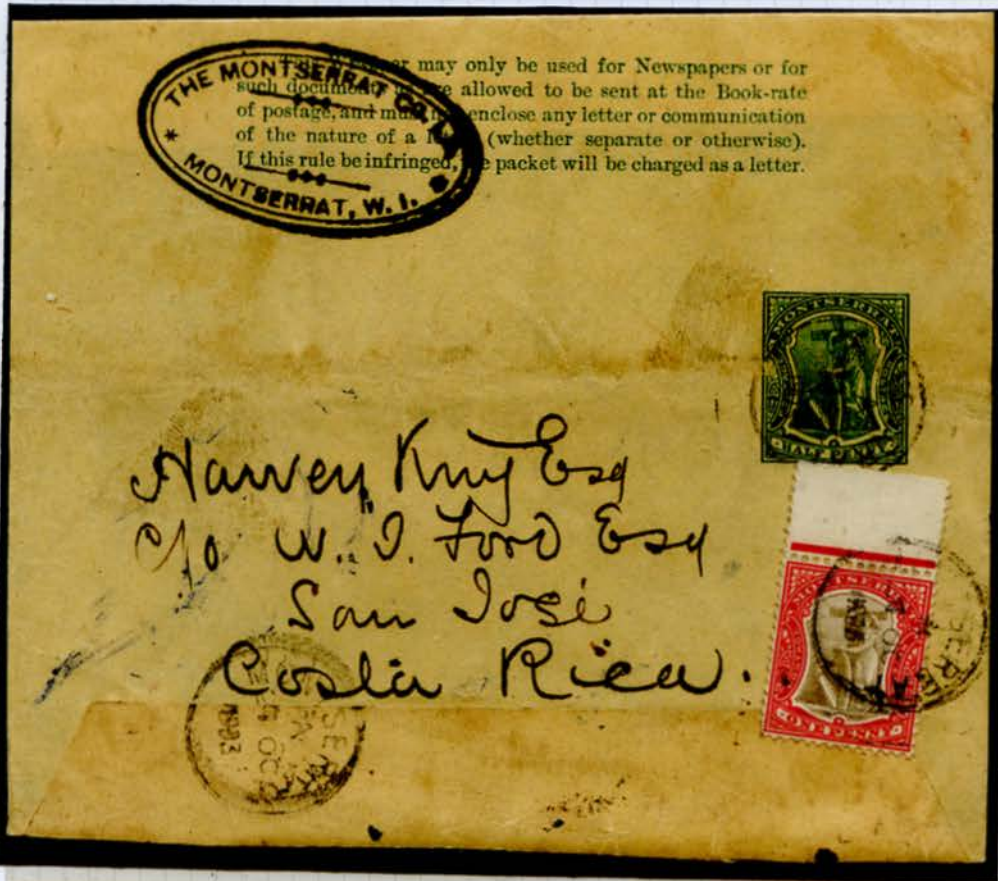 THE MONTSERRAT
MONTSERRAT, W. I.
may only be used for Newspapers or for
such documents allowed to be sent at the Book-rate
of postage, and must enclose any letter or communication
of the nature of a (whether separate or otherwise).
If this rule be infringed, packet will be charged as a letter.
MONTSERRAT
HALF PENNY
Harvey King Esq
c/o W. I. Ford Esq
San José
Costa Rica.
MONTSERRAT
ONE PENNY
OC